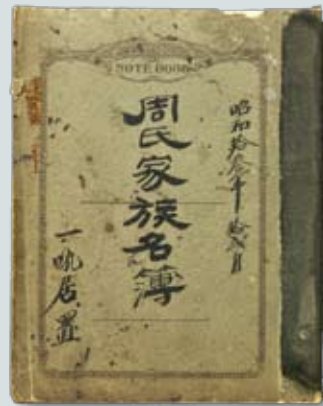 NOTE BOOK
昭和拾叁年
周氏家族名簿
一吼居置